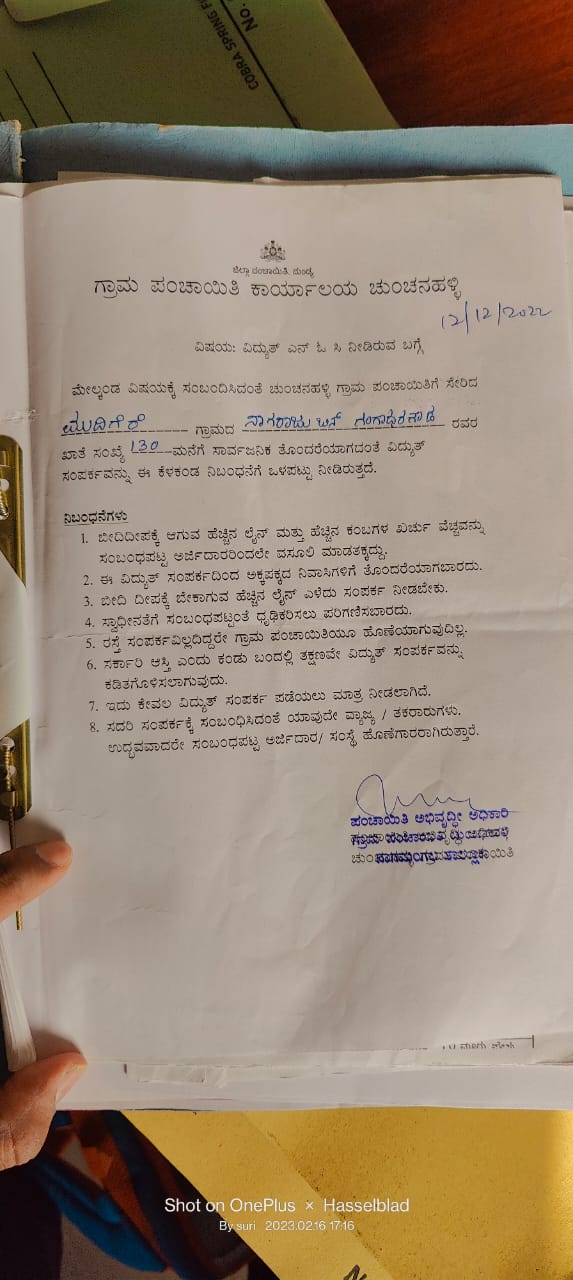 No.
COBRA SPRING FI
ಜಿಲ್ಲಾ ಪಂಚಾಯಿತಿ, ಮಂಡ್ಯ
ಗ್ರಾಮ ಪಂಚಾಯಿತಿ ಕಾರ್ಯಾಲಯ ಚುಂಚನಹಳ್ಳಿ
12/12/2022
ವಿಷಯ: ವಿದ್ಯುತ್ ಎನ್ ಓ ಸಿ ನೀಡಿರುವ ಬಗ್ಗೆ
ಮೇಲ್ಕಂಡ ವಿಷಯಕ್ಕೆ ಸಂಬಂದಿಸಿದಂತೆ ಚುಂಚನಹಳ್ಳಿ ಗ್ರಾಮ ಪಂಚಾಯಿತಿಗೆ ಸೇರಿದ
ಮುದಿಗೆರೆ ಗ್ರಾಮದ ನಾಗರಾಜು ಬಿನ್ ಗಂಗಾಧರಗೌಡ ರವರ
ಖಾತೆ ಸಂಖ್ಯೆ 130 ಮನೆಗೆ ಸಾರ್ವಜನಿಕ ತೊಂದರೆಯಾಗದಂತೆ ವಿದ್ಯುತ್
ಸಂಪರ್ಕವನ್ನು ಈ ಕೆಳಕಂಡ ನಿಬಂಧನೆಗೆ ಒಳಪಟ್ಟು ನೀಡಿರುತ್ತದೆ.
ನಿಬಂಧನೆಗಳು
1. ಬೀದಿದೀಪಕ್ಕೆ ಆಗುವ ಹೆಚ್ಚಿನ ಲೈನ್ ಮತ್ತು ಹೆಚ್ಚಿನ ಕಂಬಗಳ ಖರ್ಚು ವೆಚ್ಚವನ್ನು
ಸಂಬಂಧಪಟ್ಟ ಅರ್ಜಿದಾರರಿಂದಲೇ ವಸೂಲಿ ಮಾಡತಕ್ಕದ್ದು.
2. ಈ ವಿದ್ಯುತ್ ಸಂಪರ್ಕದಿಂದ ಅಕ್ಕಪಕ್ಕದ ನಿವಾಸಿಗಳಿಗೆ ತೊಂದರೆಯಾಗಬಾರದು.
3. ಬೀದಿ ದೀಪಕ್ಕೆ ಬೇಕಾಗುವ ಹೆಚ್ಚಿನ ಲೈನ್ ಎಳೆದು ಸಂಪರ್ಕ ನೀಡಬೇಕು.
4. ಸ್ವಾಧೀನತೆಗೆ ಸಂಬಧಪಟ್ಟಂತೆ ಧೃಢಿಕರಿಸಲು ಪರಿಗಣಿಸಬಾರದು.
5. ರಸ್ತೆ ಸಂಪರ್ಕವಿಲ್ಲದಿದ್ದರೇ ಗ್ರಾಮ ಪಂಚಾಯಿತಿಯೂ ಹೊಣೆಯಾಗುವುದಿಲ್ಲ.
6. ಸರ್ಕಾರಿ ಆಸ್ತಿ ಎಂದು ಕಂಡು ಬಂದಲ್ಲಿ ತಕ್ಷಣವೇ ವಿದ್ಯುತ್ ಸಂಪರ್ಕವನ್ನು
ಕಡಿತಗೊಳಿಸಲಾಗುವುದು.
7. ಇದು ಕೇವಲ ವಿದ್ಯುತ್ ಸಂಪರ್ಕ ಪಡೆಯಲು ಮಾತ್ರ ನೀಡಲಾಗಿದೆ.
8. ಸದರಿ ಸಂಪರ್ಕಕ್ಕೆ ಸಂಬಂಧಿಸಿದಂತೆ ಯಾವುದೇ ವ್ಯಾಜ್ಯ / ತಕರಾರುಗಳು.
ಉದ್ಭವವಾದರೇ ಸಂಬಂಧಪಟ್ಟ ಅರ್ಜಿದಾರ/ ಸಂಸ್ಥೆ ಹೊಣೆಗಾರರಾಗಿರುತ್ತಾರೆ.
ಪಂಚಾಯಿತಿ ಅಭಿವೃದ್ಧೀ ಅಧಿಕಾರಿ
Shot on OnePlus × Hasselblad
By suri 2023.02.16 17:16